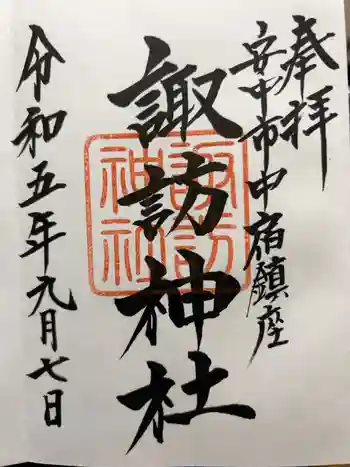 奉拝
安中市中宿鎮座
諏訪神社
諏訪神社
令和五年九月七日